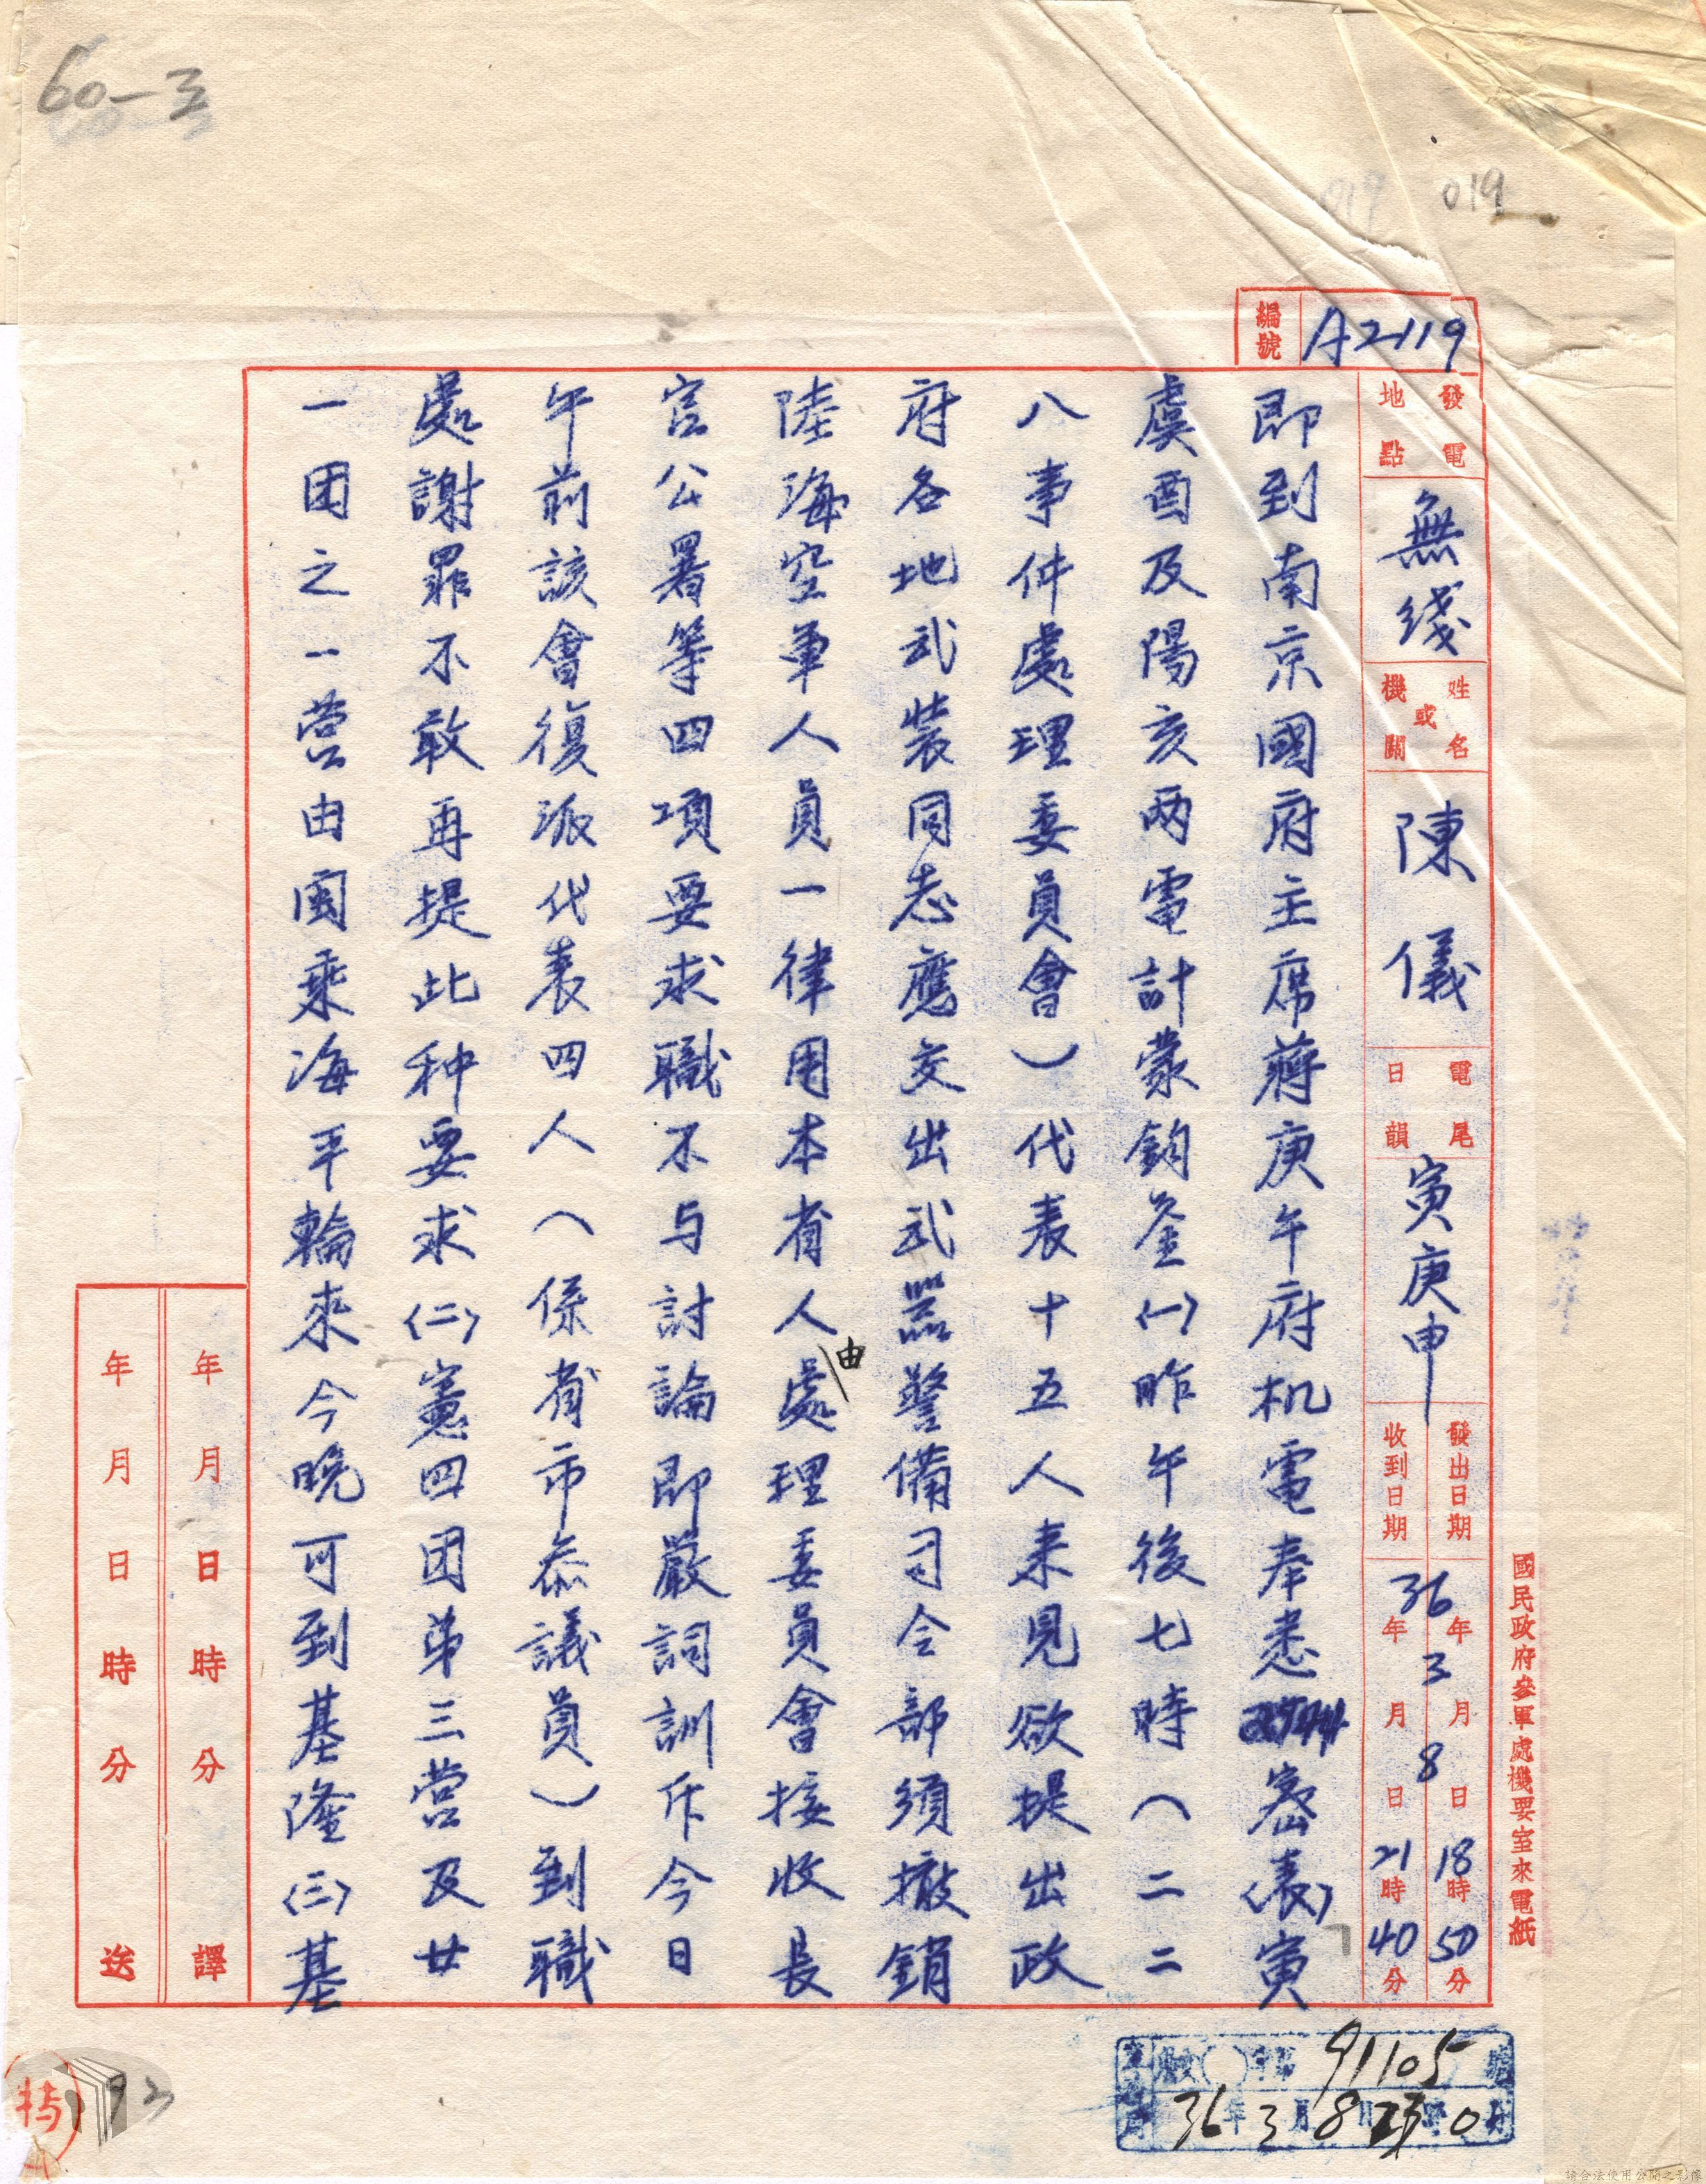 60—3
019
編號 A2119
國民政府參軍處機要室來電紙
發電地點 無綫
姓名或機關 陳儀
電尾日韻 寅庚申
發出日期 36年3月8日18時50分
收到日期 年月日21時40分
即到南京國府主席蔣庚午府机電奉悉密(表)寅
虞酉及陽亥兩電計蒙鈞鉴(一)昨午後七時(二二
八事件處理委員會)代表十五人来見欲提出政
府各地武装同志應交出武器警備司令部須撤銷
陸海空軍人員一律用本省人由處理委員會接收長
官公署等四項要求職不与討論即嚴詞訓斥今日
午前該會復派代表四人(係省市叅議員)到職
處謝罪不敢再提此种要求(二)憲四团第三營及廿
一团之一營由闽乘海平輪来今晚可到基隆(三)基
年月日時分譯
年月日時分送
91105
36年3月8日
特
92
請合法使用公開之影像